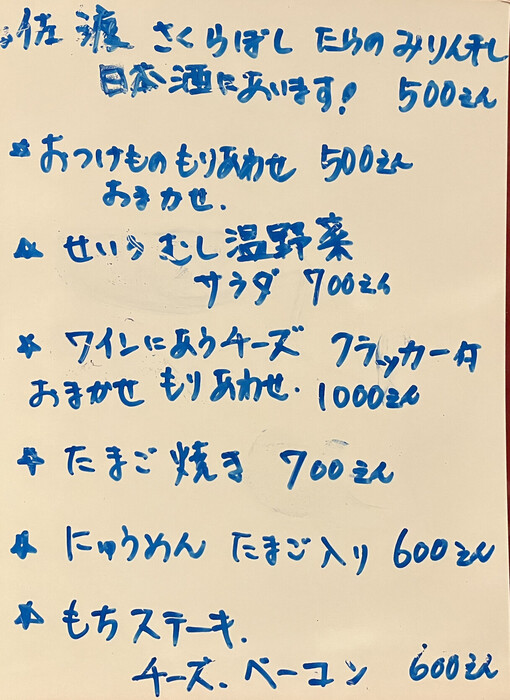 佐渡 さくらぼし たらのみりん干し
日本酒にあいます! 500えん
★おつけもの もりあわせ 500えん
おまかせ.
★ せいろむし温野菜
サラダ 700えん
★ ワインにあうチーズ クラッカー付
おまかせ もりあわせ. 1000えん
★ たまご焼き 700えん
★ にゅうめん たまご入り 600えん
★ もちステーキ.
チーズ、ベーコン 600えん